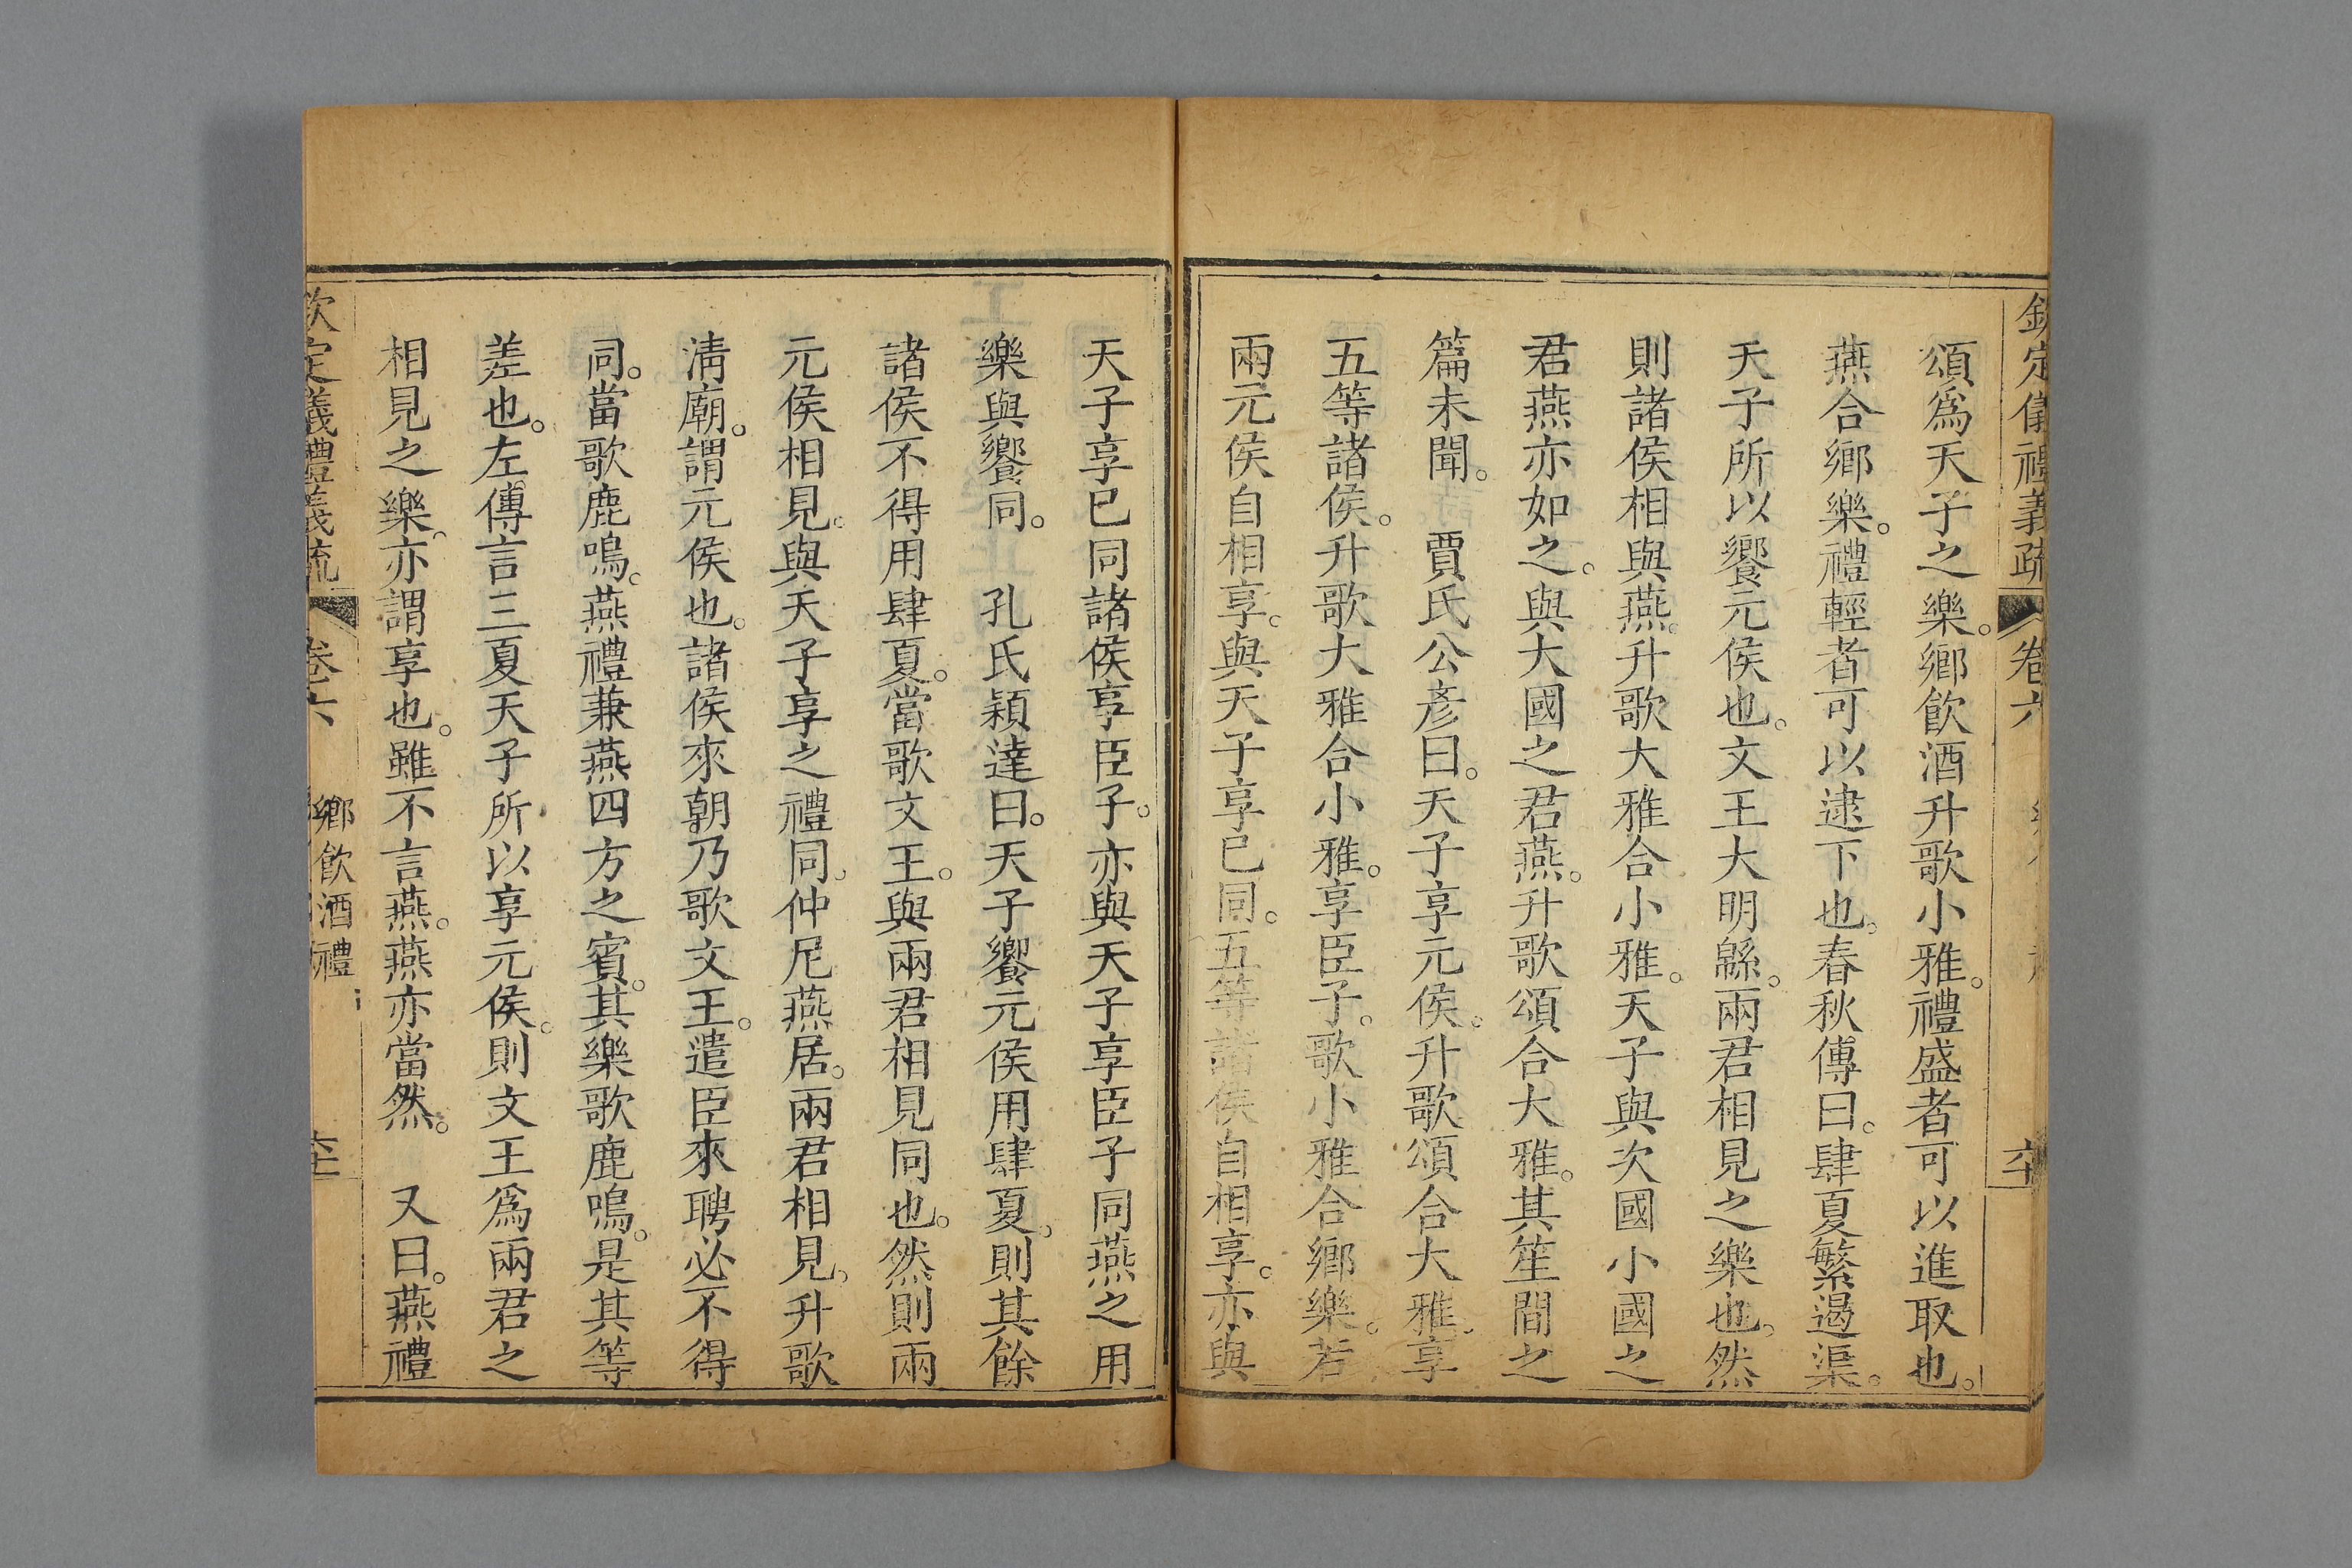 欽定儀禮義疏 卷六 六十
頌爲天子之樂。鄉飲酒升歌小雅。禮盛者可以進取也。
燕合鄉樂。禮輕者可以逮下也。春秋傳曰。肆夏繁遏渠。
天子所以饗元侯也。文王大明緜。兩君相見之樂也。然
則諸侯相與燕。升歌大雅合小雅。天子與次國小國之
君燕亦如之。與大國之君燕。升歌頌合大雅。其笙間之
篇未聞。 賈氏公彥曰。天子享元侯。升歌頌合大雅。享
五等諸侯。升歌大雅合小雅。享臣子。歌小雅合鄉樂。若
兩元侯自相享。與天子享已同。五等諸侯自相享。亦與
天子享已同諸侯享臣子。亦與天子享臣子同燕之用
樂與饗同。 孔氏穎達曰。天子饗元侯用肆夏。則其餘
諸侯不得用肆夏。當歌文王。與兩君相見同也。然則兩
元侯相見。與天子享之禮同。仲尼燕居。兩君相見。升歌
淸廟。謂元侯也。諸侯來朝乃歌文王。遣臣來聘必不得
同。當歌鹿鳴。燕禮兼燕四方之賓。其樂歌鹿鳴。是其等
差也。左傳言三夏天子所以享元侯。則文王爲兩君之
相見之樂。亦謂享也。雖不言燕。燕亦當然。 又曰。燕禮
欽定儀禮義疏 卷六 鄉飲酒禮